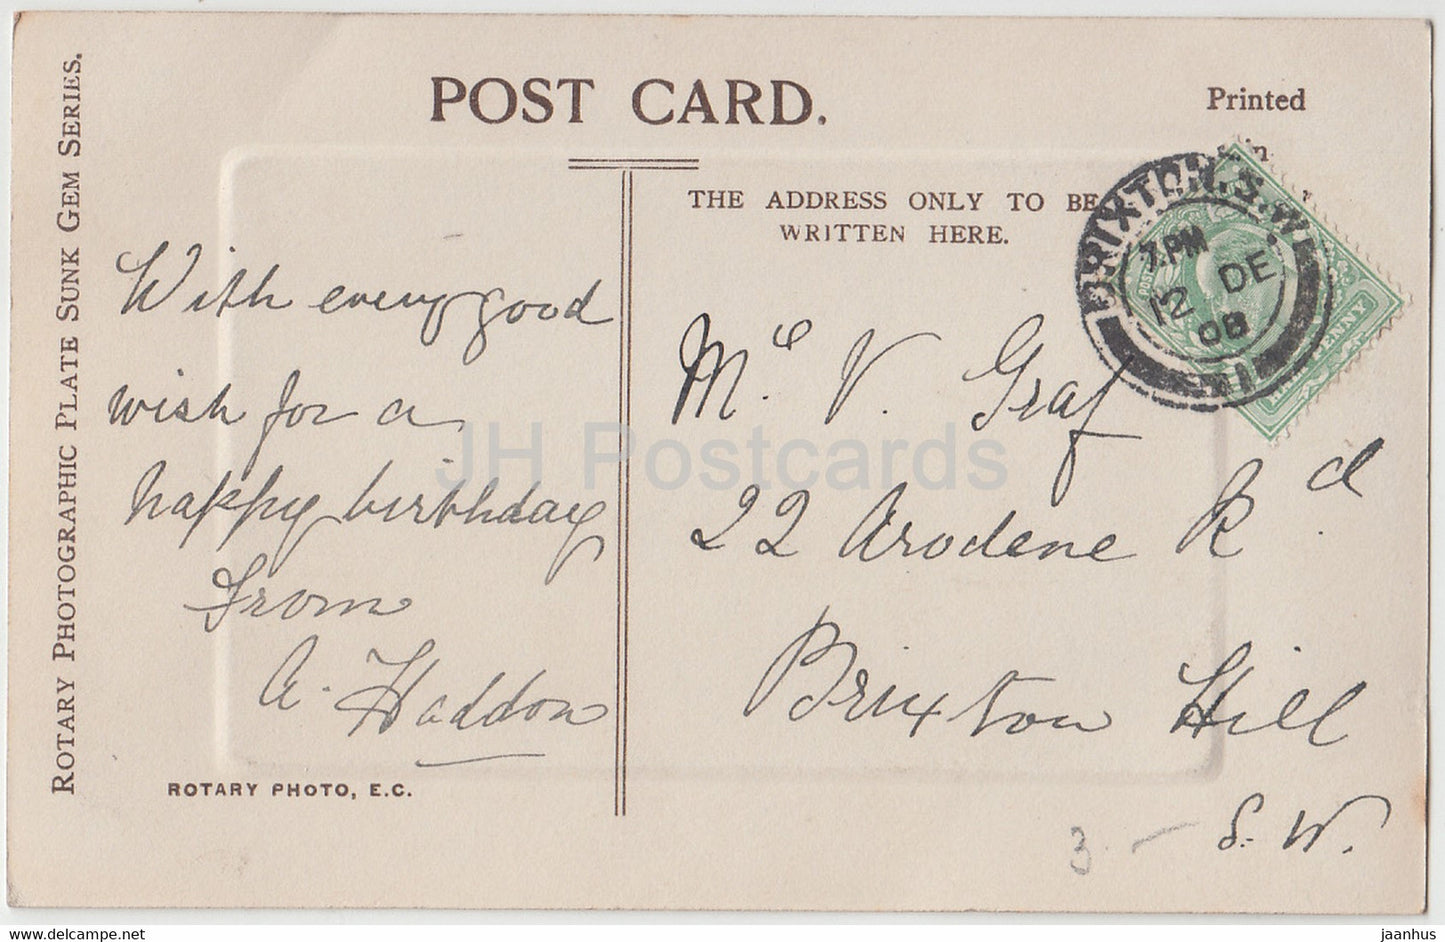 POST CARD.
Printed
in
THE ADDRESS ONLY TO BE
WRITTEN HERE.
ROTARY PHOTOGRAPHIC PLATE SUNK GEM SERIES.
With every good
wish for a
happy birthday
From
A. Haddon
ROTARY PHOTO, E.C.
BRIXTON. S.W.
7. PM
12 DE
08
PENNY
V. Graf
22 Arodene Rd
Brixton Hill
S. W.
3 -
JH Postcards
www.delcampe.net
jaanhus